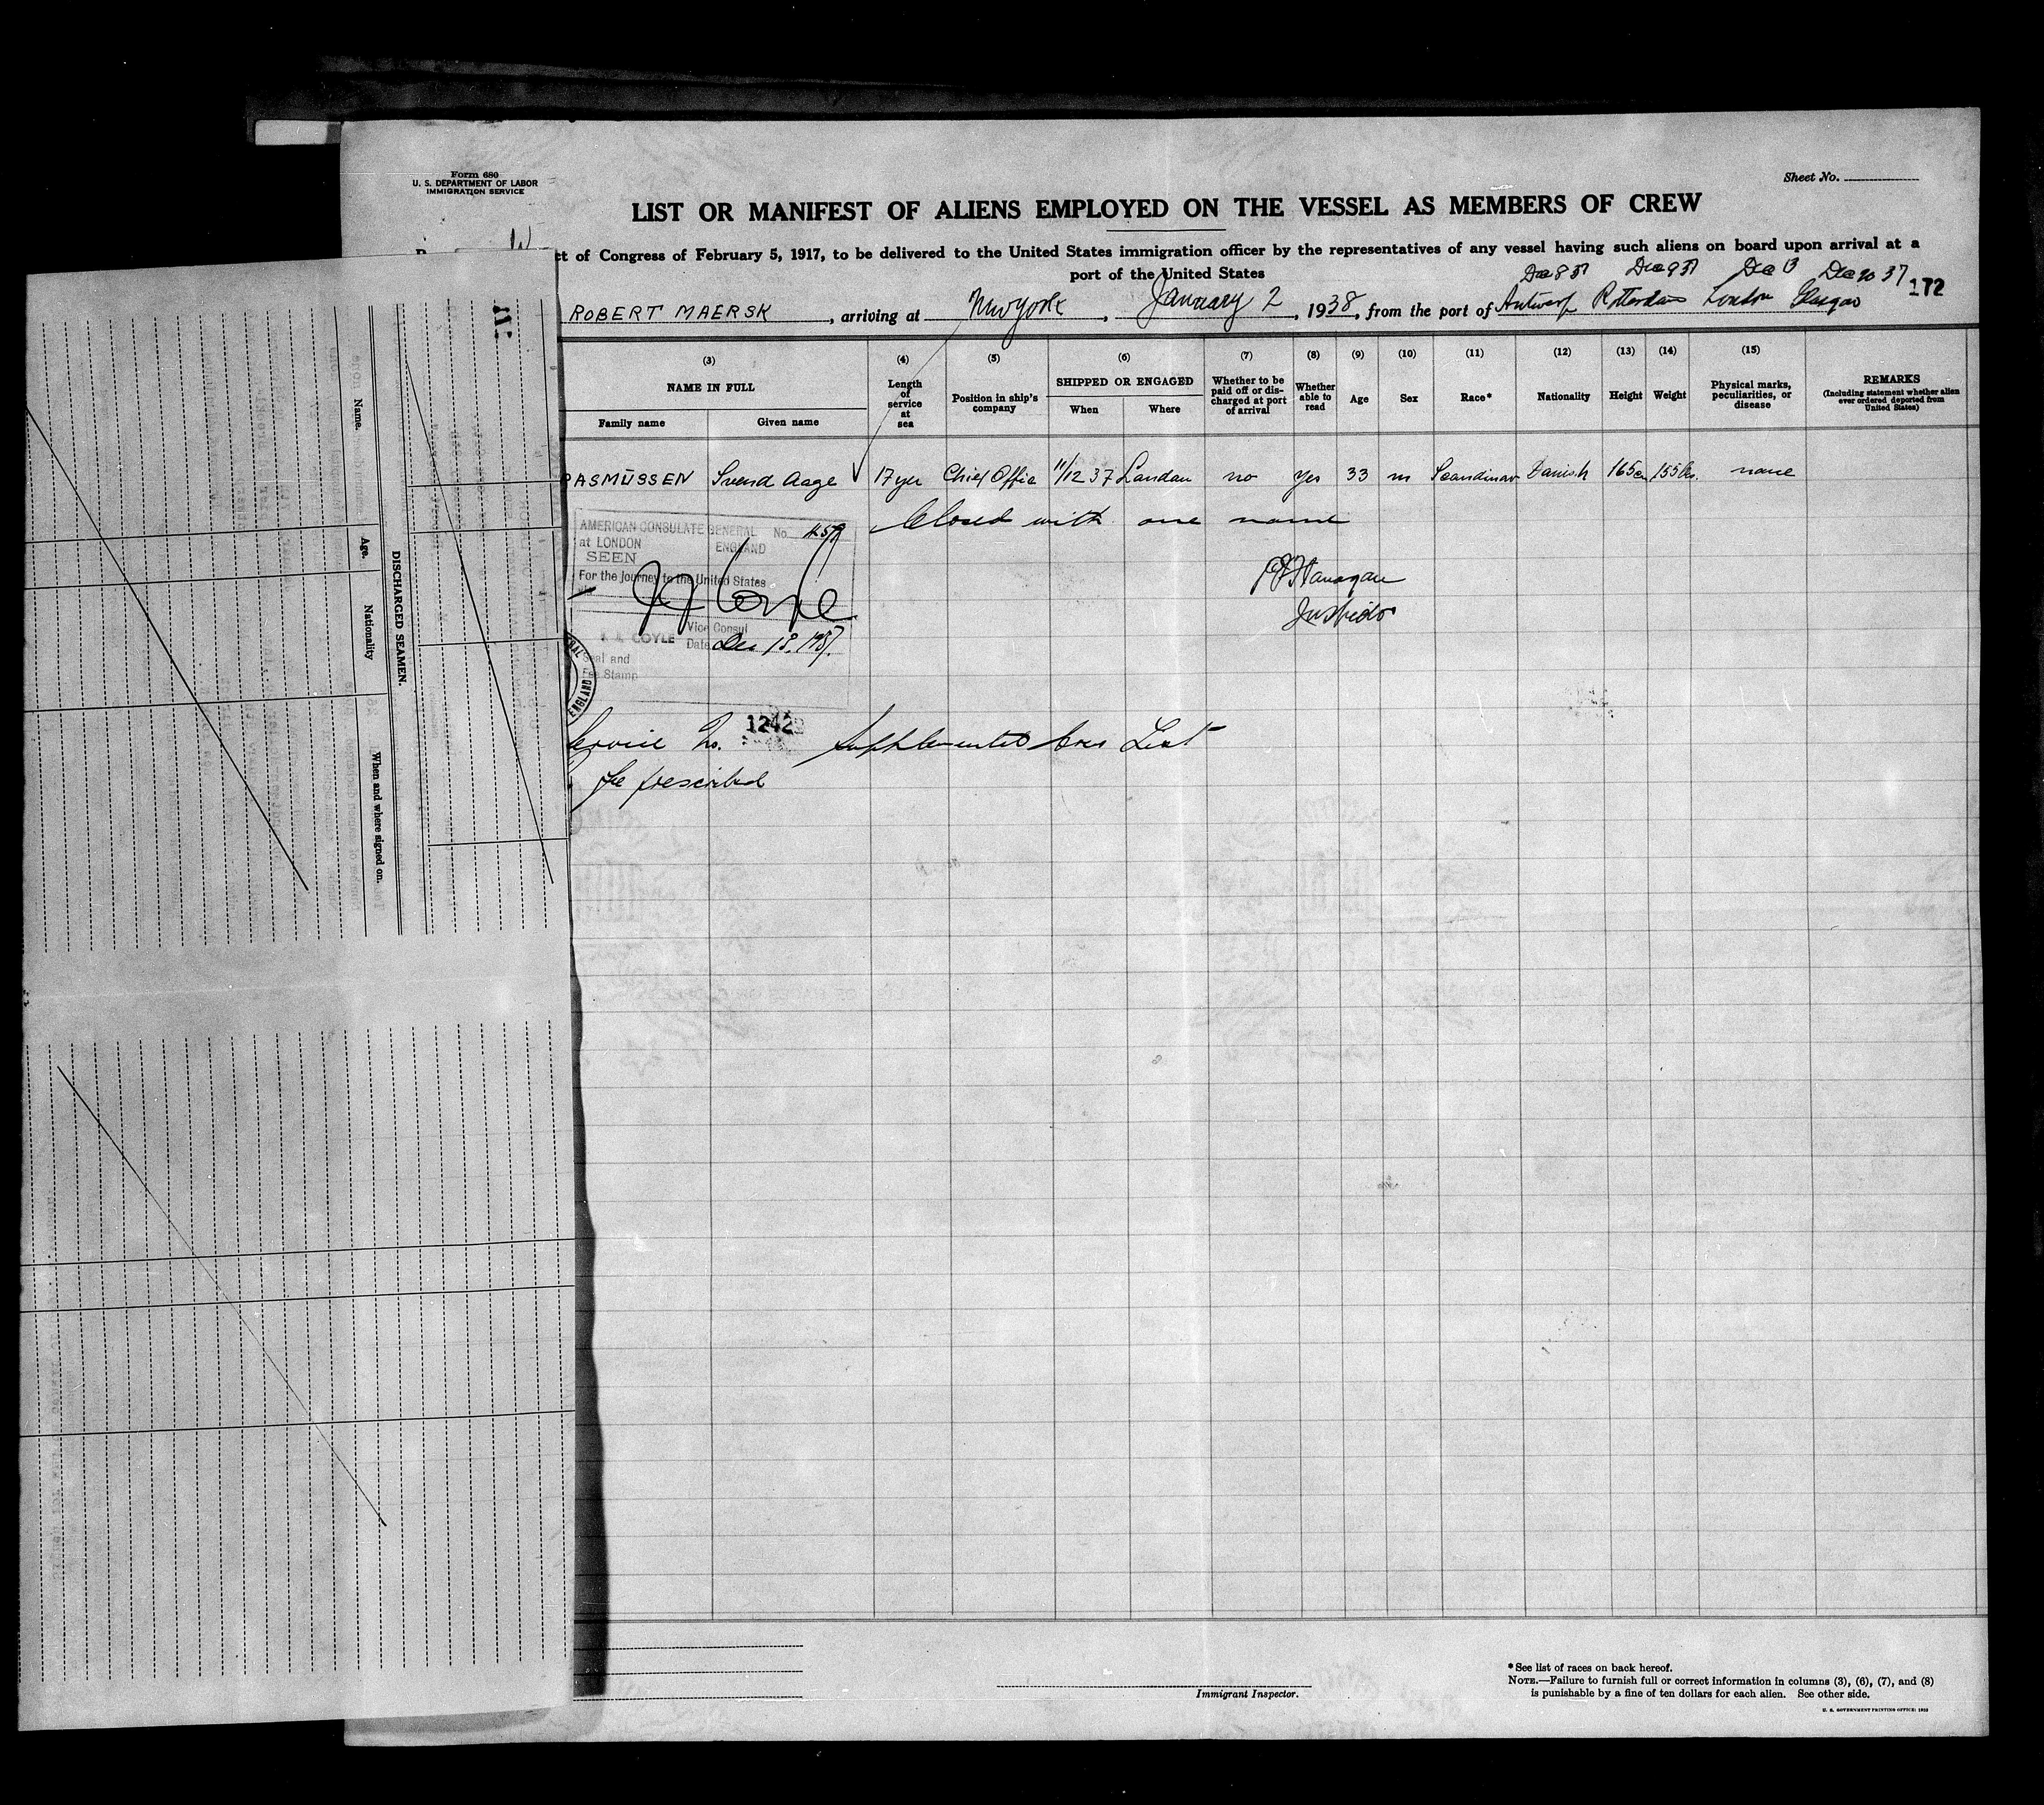 Form 680
U. S. DEPARTMENT OF LABOR
IMMIGRATION SERVICE
Sheet No.
LIST OR MANIFEST OF ALIENS EMPLOYED ON THE VESSEL AS MEMBERS OF CREW
ct of Congress of February 5, 1917, to be delivered to the United States immigration officer by the representatives of any vessel having such aliens on board upon arrival at a
port of the United States
Dec 8 37 Dec 9 37 Dec 13 Dec 20 37
172
ROBERT MAERSK , arriving at New York , January 2 , 1938, from the port of Antwerp Rotterdam London Glasgow
(3) (4) (5) (6) (7) (8) (9) (10) (11) (12) (13) (14) (15)
NAME IN FULL
Family name Given name
Length of service at sea
Position in ship's company
SHIPPED OR ENGAGED
When Where
Whether to be paid off or discharged at port of arrival
Whether able to read
Age
Sex
Race*
Nationality
Height
Weight
Physical marks, peculiarities, or disease
REMARKS
(Including statement whether alien ever ordered deported from United States)
RASMÜSSEN Svend Aage 17 yer Chief Office 11/12 37 London no yes 33 m Scandinav Danish 165 cm 155 lbs. none
Closed with one name
AMERICAN CONSULATE GENERAL No.
at LONDON ENGLAND
SEEN
For the journey to the United States
Vice Consul
COYLE
Date Dec 18. 1937.
Seal and
Fee Stamp
ENGLAND
Service No. 1242 Supplemental Crew List
Fee prescribed
DISCHARGED SEAMEN.
Name.
Age.
Nationality
When and where signed on.
Immigrant Inspector.
* See list of races on back hereof.
NOTE.—Failure to furnish full or correct information in columns (3), (6), (7), and (8)
is punishable by a fine of ten dollars for each alien. See other side.
U. S. GOVERNMENT PRINTING OFFICE: